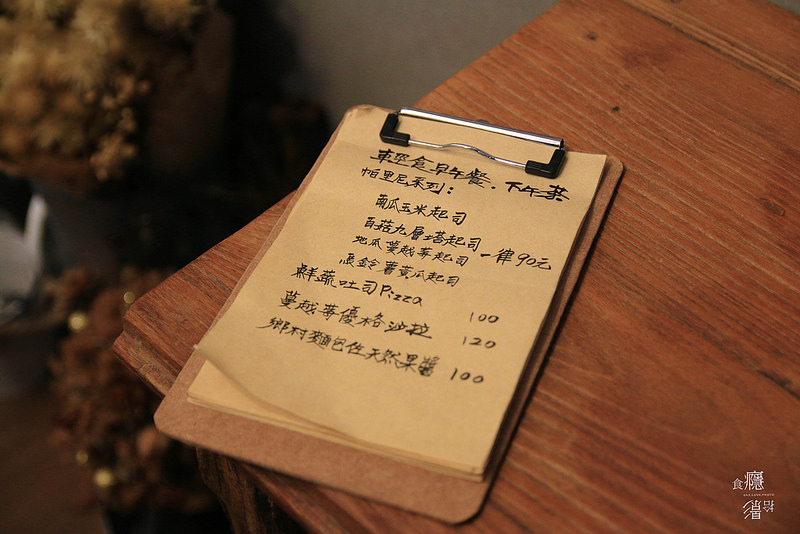 輕食早午餐．下午茶
帕里尼系列：
南瓜玉米起司
百菇九層塔起司
地瓜蔓越莓起司 一律90元
馬鈴薯黃瓜起司
鮮蔬吐司Pizza 100
蔓越莓優格沙拉 120
鄉村麵包佐天然果醬 100
食癮
拾影